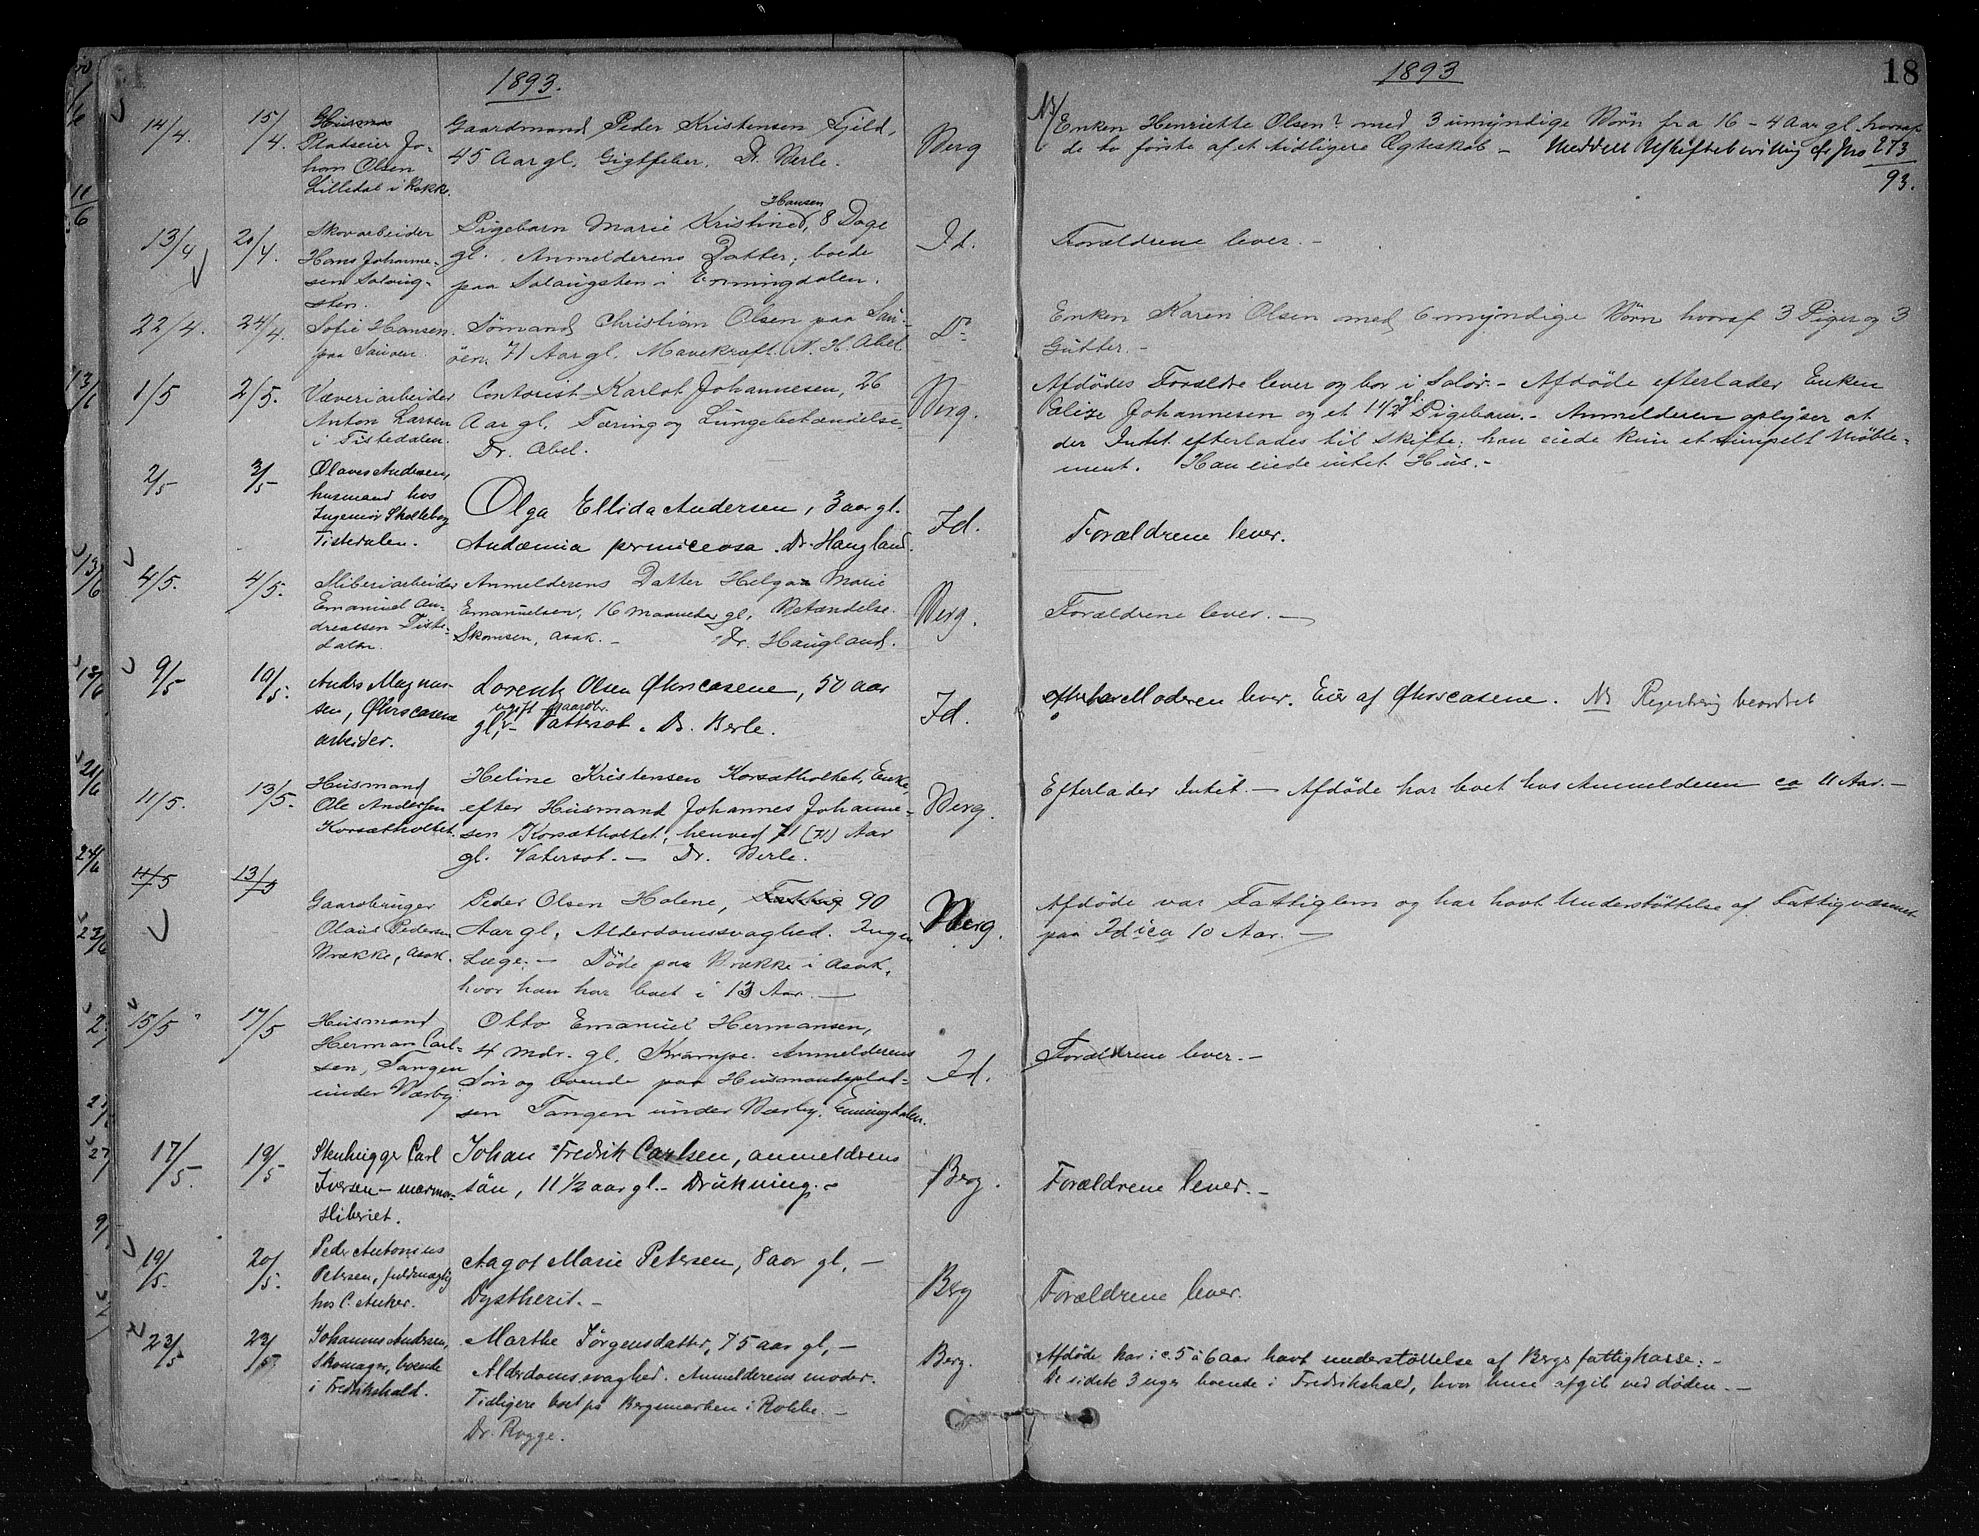 1893.
1893
18
14/4. 15/4. Husma
Pladseier Jo-
han Olsen
Lilledal i Rokke.
Gaardmand Peder Kristensen Fjeld,
45 Aar gl. Gigtfeber. Dr. Berle.
Berg
Enken Henriette Olsen? med 3 umyndige Börn fra 16 - 4 Aar gl. hvoraf
de to förste af et tidligere Ægteskab - Meddelt Uskiftebevilling cfr Jno 273/93.
13/4 20/4. Skovarbeider
Hans Johanne-
sen Solaug-
sten.
Hansen
Pigebarn Marie Kristine, 8 Dage
gl. Anmelderens Datter; boede
paa Solaugsten i Enningdalen.
Id.
Forældrene lever. -
22/4. 24/4. Sofie Hansen
paa Sauöen.
Sömand Christian Olsen paa Sau-
öen. 71 Aar gl. Mavekræft. N. H. Abel
Do.
Enken Karen Olsen med 6 myndige Börn hvoraf 3 Piger og 3
Gutter. -
1/5 2/5. Væveriarbeider
Anton Larsen
i Tistedalen.
Contorist Karlot Johannesen, 26
Aar gl. Tæring og Lungebetændelse.
Dr. Abel.
Berg.
Afdödes Forældre lever og bor i Solör. - Afdöde efterlader Enken
Valize Johannesen og et 1 1/2 gl. Pigebarn. - Anmelderen oplyser at
der Intet efterlades til Skifte; han eiede kun et simpelt Möble-
ment. Han eiede intet Hus. -
2/5 3/5 Olaves Andersen,
husmand hos
Ingeniör Skolleborg
Tistedalen.
Olga Ellida Andersen, 3 aar gl.
Andæmia perniceosa. Dr. Haugland.
Id.
Forældrene lever.
4/5. 4/5. Sliberiarbeider
Emanuel An-
dreassen Tiste-
dalen.
Anmelderens Datter Helga Marie
Emanuelsen, 16 maaneder gl. Betændelse.
Skonsen, Asak. - Dr. Haugland.
Berg.
Forældrene lever. -
9/5 10/5. Andrs Magnus-
sen, Ökscasene
arbeider.
Lorentz Olsen Ökscasene, 50 aar
ugift gaardbr.
gl, - Vattersot. Dr. Berle.
Id.
Moderen lever. Eier af Ökscasene. NB Registrering beordret
11/5. 13/5. Husmand
Ole Andersen
Korsætholtet.
Heline Kristensen Korsætholtet, Enke
efter Husmand Johannes Johanne-
sen Korsætholtet, henved 71 (71) Aar
gl. Vatersot. - Dr. Berle.
Berg.
Efterlader Intet. - Afdöde har boet hos Anmelderen ca 11 Aar. -
11/5 13/5
Gaardbruger
Olaus Pedersen
Brække, Asak.
Peder Olsen Holene, Fattig 90
Aar gl. Alderdomssvaghed. Ingen
Læge. - Döde paa Brække i Asak,
hvor han har boet i 13 Aar. -
Berg.
Afdöde var Fattiglem og har havt Understöttelse af Fattigvæsenet
paa Id i ca 10 Aar. -
15/5 17/5 Husmand
Herman Carl-
sen, Tangen
under Bærby.
Otto Emanuel Hermansen,
4 Mdr. gl. Krampe. Anmelderens
Sön og boende paa Husmandsplad-
sen Tangen under Bærby. Enningdalen.
Id.
Forældrene lever. -
17/5. 19/5 Stenhugger Carl
Iversen - marmor-
sliberiet.
Johan Fredrik Carlsen, anmeldrens
sön, 11 1/2 aar gl. - Drukning. -
Berg.
Forældrene lever. -
19/5. 20/5. Peder Antonius
Petersen, fuldmægtig
hos C. Anker.
Aagot Marie Petersen, 8 aar gl. -
Dystherit. -
Berg
Forældrene lever.
23/5 23/5. Johannes Andersen,
Skomager, boende
i Fredrikshald.
Marthe Jörgensdatter, 75 aar gl, -
Alderdomssvaghed. Anmelderens moder.
Tidligere boet på Bergsmarken i Rokke. -
Dr. Rogge.
Berg.
Afdöde har i c. 5 à 6 aar havt understöttelse af Bergs fattigkasse; -
De sidste 3 uger boende i Fredrikshald, hvor hun afgik ved döden. -